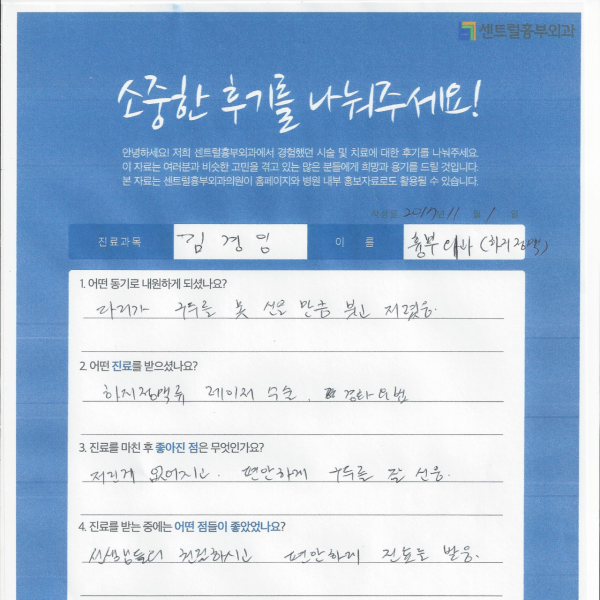 센트럴흉부외과
소중한 후기를 나눠주세요!
안녕하세요! 저희 센트럴흉부외과에서 경험했던 시술 및 치료에 대한 후기를 나눠주세요.
이 자료는 여러분과 비슷한 고민을 겪고 있는 많은 분들에게 희망과 용기를 드릴 것입니다.
본 자료는 센트럴흉부외과의원이 홈페이지와 병원 내부 홍보자료로도 활용될 수 있습니다.
작성일 2017년 11월 1일
진료과목 김경임 이 름 흉부외과 (하지정맥)
1. 어떤 동기로 내원하게 되셨나요?
다리가 구두를 못 신을 만큼 붓고 저렸음.
2. 어떤 진료를 받으셨나요?
하지정맥류 레이저 수술, 경화요법
3. 진료를 마친 후 좋아진 점은 무엇인가요?
저린게 없어지고. 편안하게 구두를 잘 신음.
4. 진료를 받는 중에는 어떤 점들이 좋았었나요?
선생님들이 친절하시고 편안하게 진료를 받음.